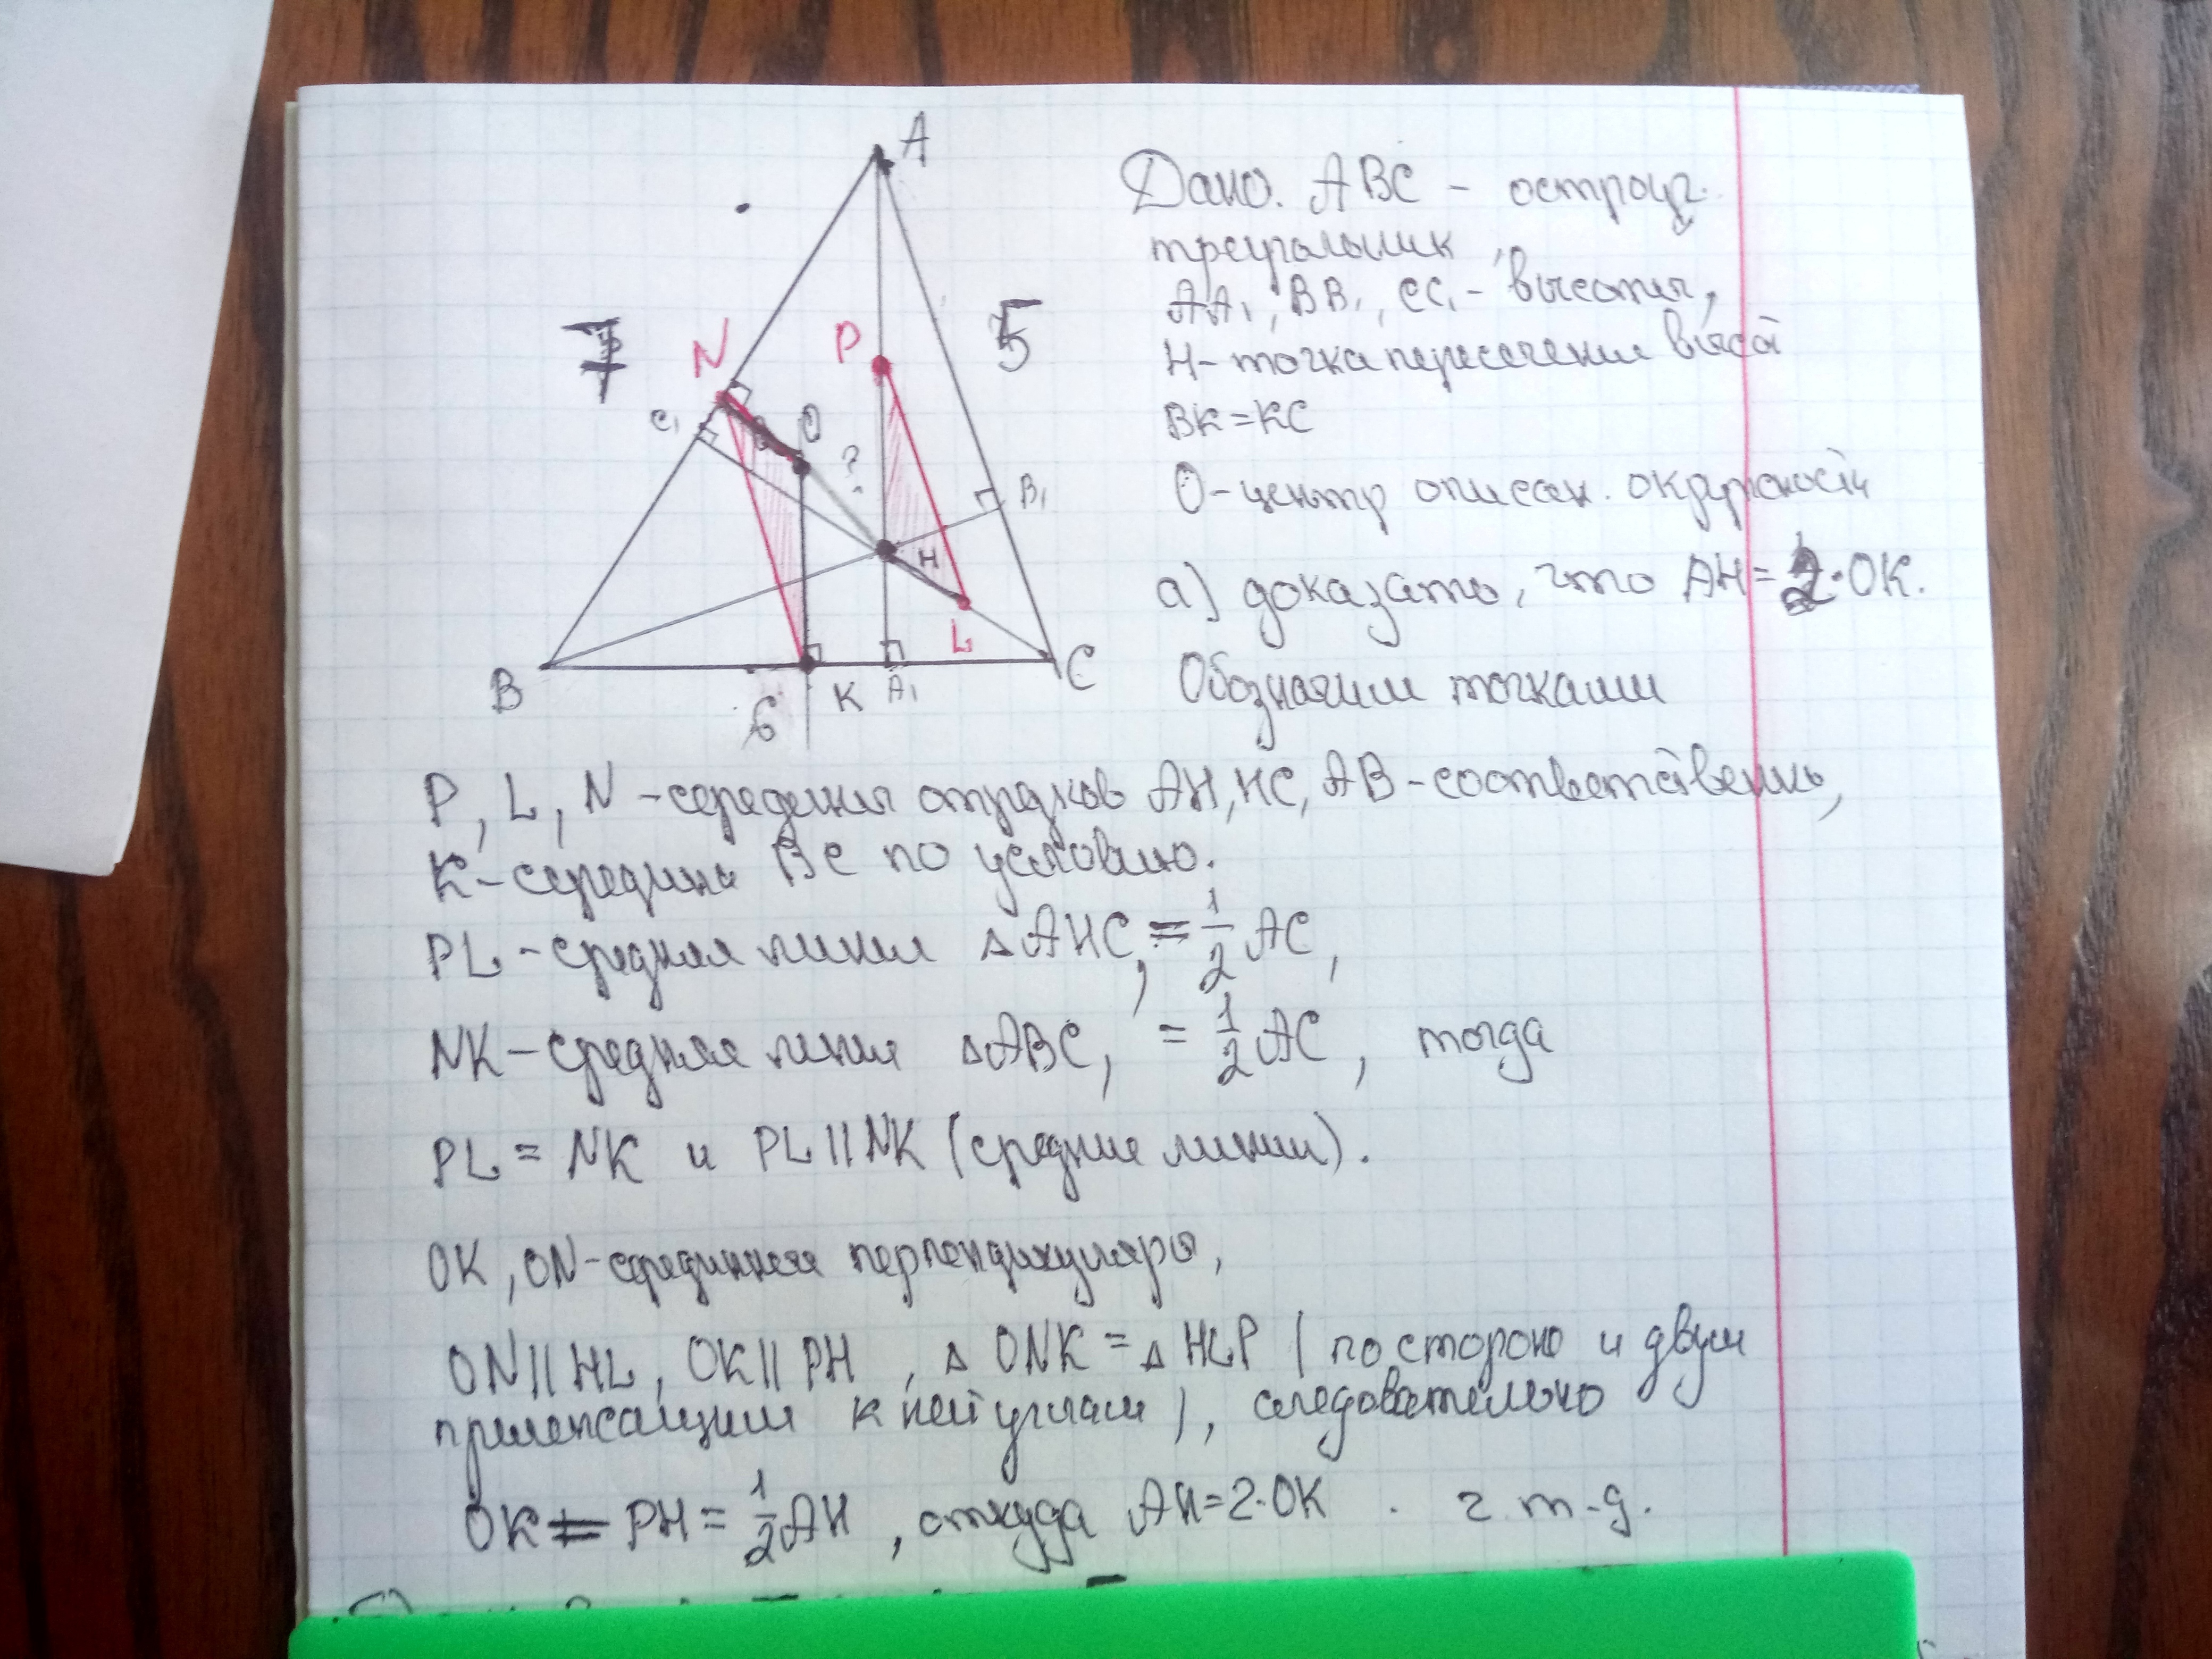 A
Дано. ABC - остроуг.
треугольник,
AA₁, BB₁, CC₁ - высоты,
7
N
P
5
H - точка пересечения высот
C₁
O
BK = KC
?
B₁
O - центр описан. окружности
H
а) доказать, что AH = 2·OK.
L
B
6
K
A₁
C
Обозначим точками
P, L, N - середины отрезков AH, HC, AB - соответственно,
K - середина BC по условию.
PL - средняя линия △AHC, = 1/2 AC,
NK - средняя линия △ABC, = 1/2 AC, тогда
PL = NK и PL || NK (средние линии).
OK, ON - серединные перпендикуляры,
ON || HL, OK || PH, △ONK = △HLP (по стороне и двум
прилежащим к ней углам), следовательно
OK = PH = 1/2 AH, откуда AH = 2·OK. ч.т.д.